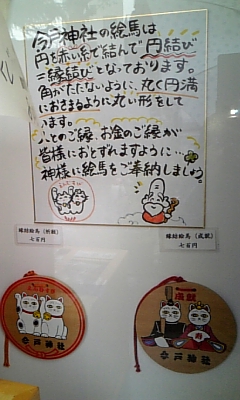 今戸神社の絵馬は
円を赤い紐で結んで円結び
＝縁結びとなっております。
角がたたないように、丸く円満
におさまるように丸い形をして
います。
人とのご縁、お金のご縁が
皆様におとずれますように…
神様に絵馬をご奉納しましょう。
縁結絵馬（祈願）
七百円
縁結絵馬（成就）
七百円
成就
寿
今戸神社
今戸神社